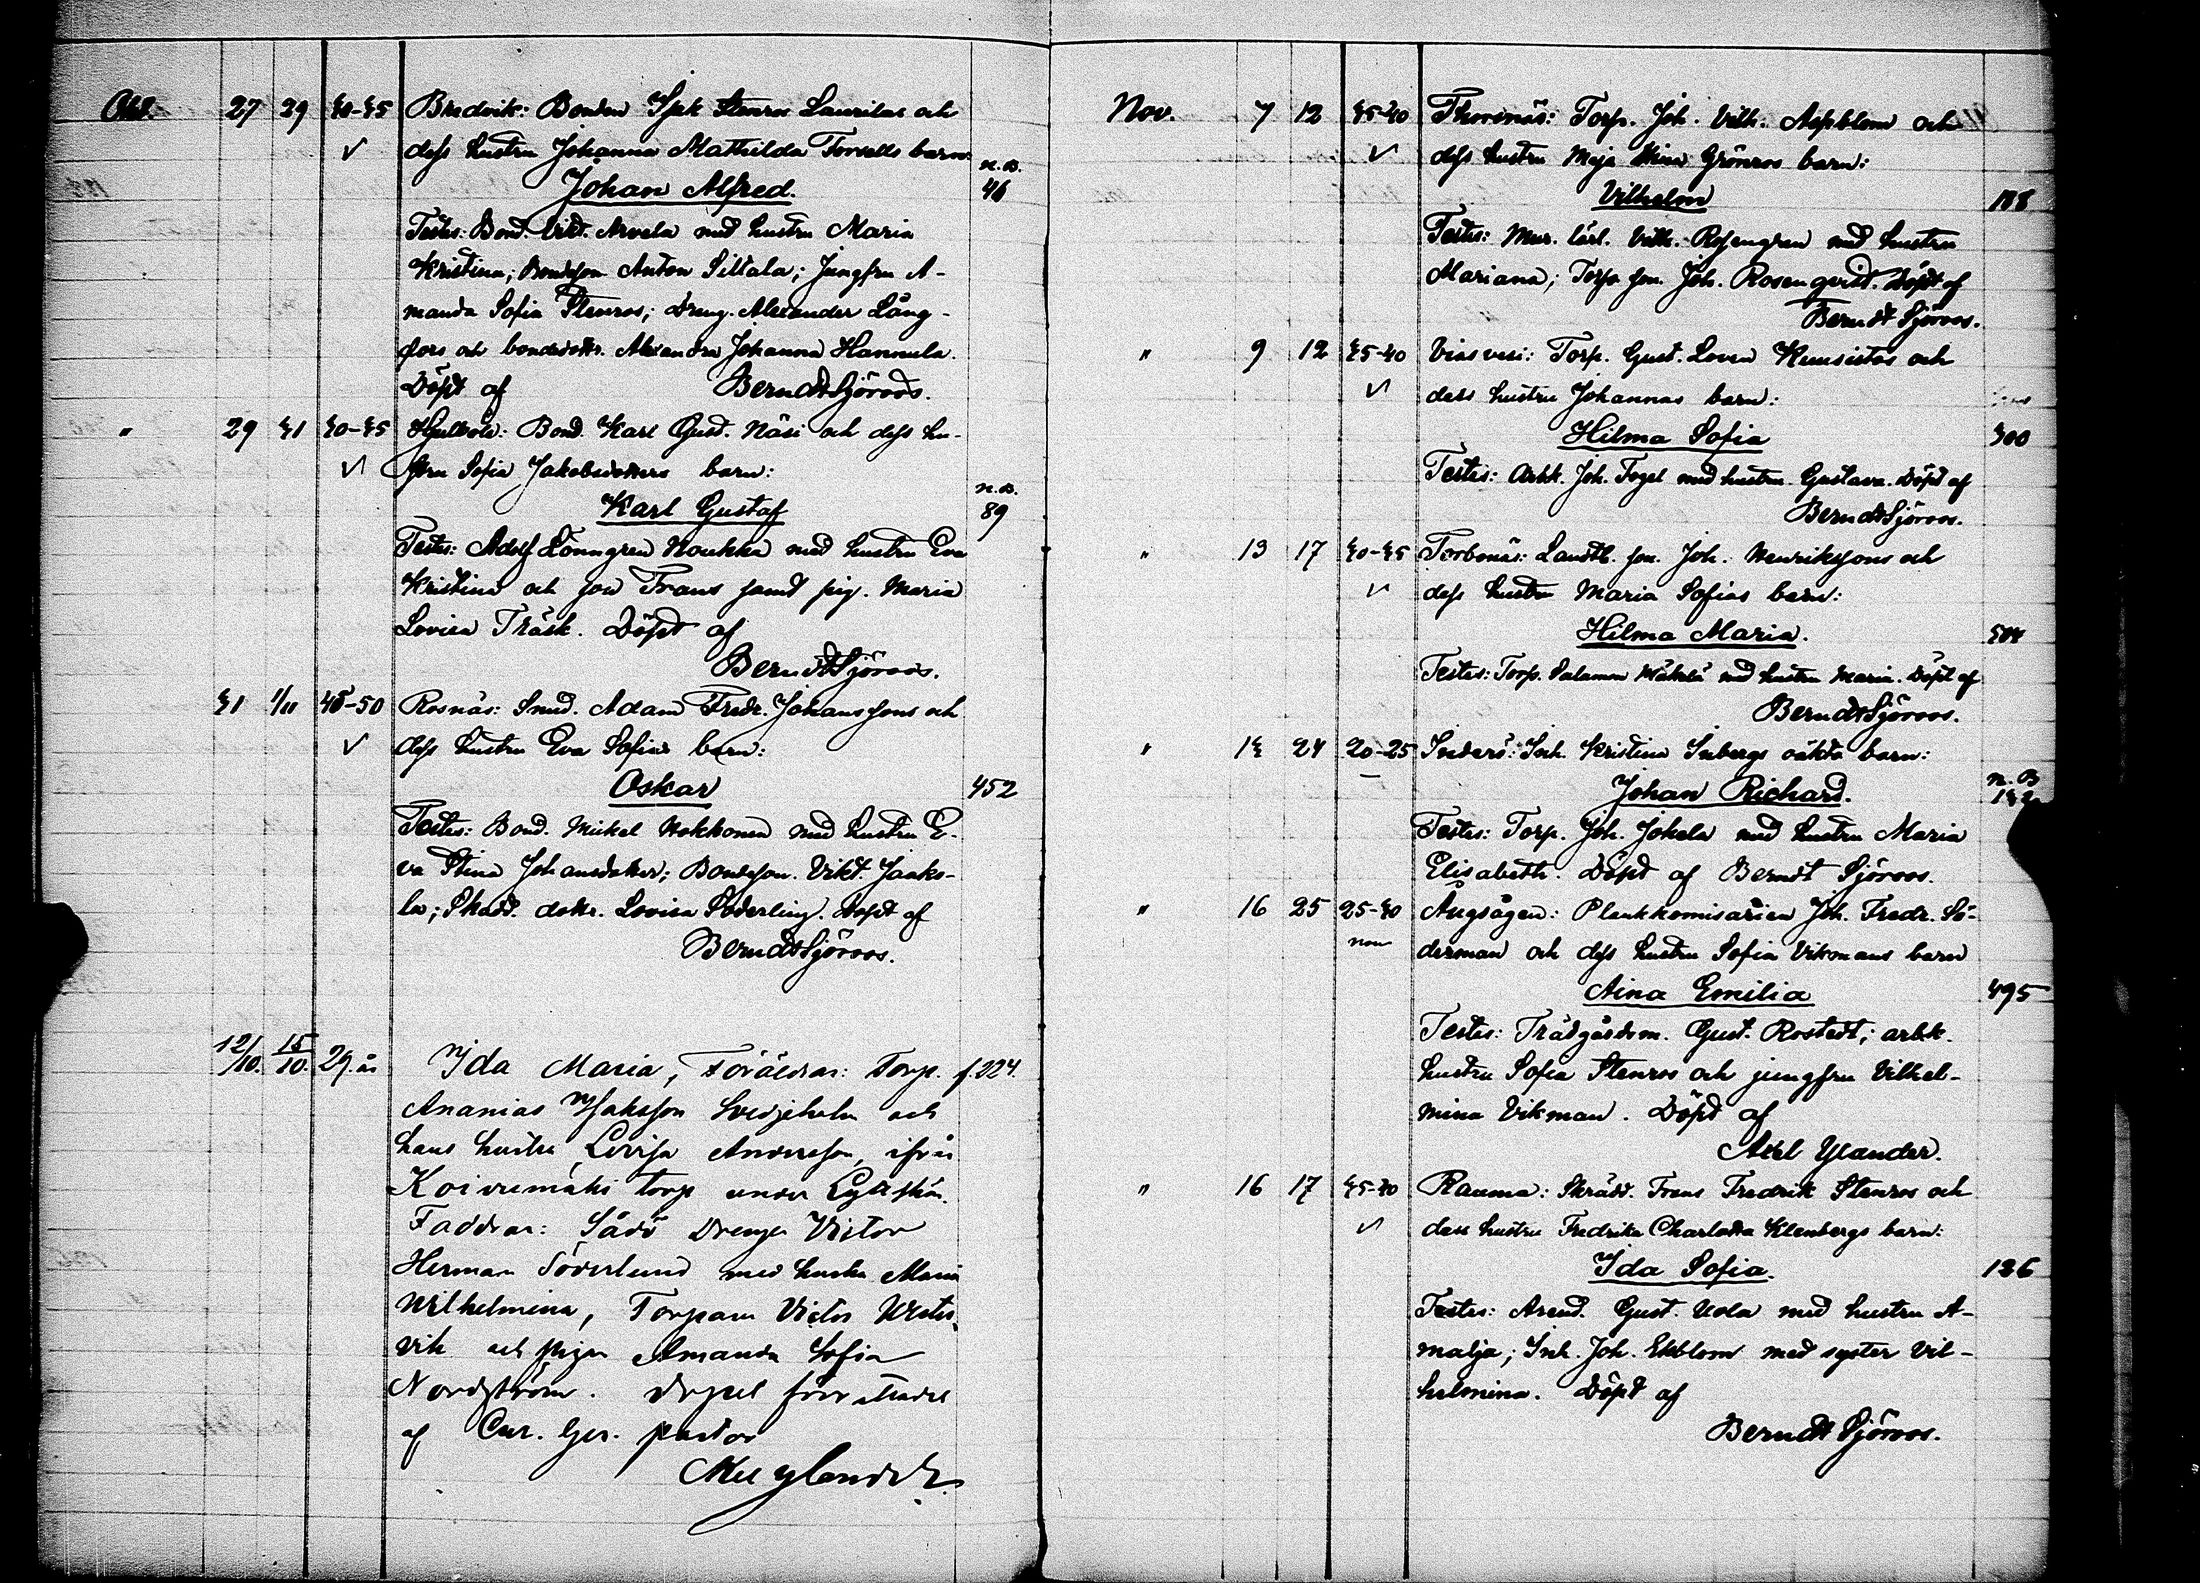 Okt. 27 29 30-35 Bredvik: Bonden Isak Stenros Laurilas och
✓ dess hustru Johanna Mathilda Forsells barn:
Johan Alfred. n.B. 46
Testes: Bond. Vikt. Arvela med hustru Maria
Kristina; Bondeson Anton Sillala; Jungfru A-
manda Sofia Stenros; Dreng. Alexander Lång-
fors och bondedottr. Alexandra Johanna Hannula.
Döpt af Berndt Sjöroos.
" 29 31 30-35 Hjulböle: Bond. Karl Gust. Näsi och dess hu-
✓ stru Sofia Jakobsdotters barn:
Karl Gustaf n.B. 89
Testes: Adolf Lönngren Noukka med hustru Eva
Kristina och son Frans samt pig. Maria
Lovisa Träsk. Döpt af
Berndt Sjöroos.
31 1/11 45-50 Rosnäs: Smed. Adam Fredr. Johanssons och
✓ dess hustru Eva Sofias barn:
Oskar 452
Testes: Bond. Mickel Hokkonen med hustru E-
va Stina Johansdotter; Bondeson. Vikt. Jaaks-
la; Skädd. dottr. Lovisa Söderling. Döpt af
Berndt Sjöroos.
12/10. 15/10. 29 år Ida Maria, Föräldrar: Torp. f. 224.
Ananias Isaksson Svedjeholm och
hans hustru Lovisa Andersson, ifrån
Koivumäki torp under Lyttskär.
Faddrar: Sådö Drenger Victor
Herman Söderlund med hustru Maria
Wilhelmina, Torparn Victor Wester-
vik och pigan Amanda Sofia
Nordström. Dopet förrättadt
af Cur. Ger. pastor
Axel Ylander.
Nov. 7 12 35-40 Thorsnäs: Torp. Joh. Vilh. Aspblom och
✓ dess hustru Maja Stina Grönros barn:
Vilhelm 188
Testes: Mur. lärl. Vilh. Rosengren med hustru
Mariana; Torp. son. Joh. Rosenqvist. Döpt af
Berndt Sjöroos.
" 9 12 35-40 Viasvesi: Torp. Gust. Loven Kuusistos och
✓ dess hustru Johannas barn:
Hilma Sofia 300
Testes: Arbk. Joh. Fogel med hustru Gustava. Döpt af
Berndt Sjöroos.
" 13 17 30-35 Torbonäs: Landtb. son. Joh. Henrikssons och
✓ dess hustru Maria Sofias barn:
Hilma Maria. 504
Testes: Torp. Salamon Mäkelä med hustru Maria. Döpt af
Berndt Sjöroos.
" 14 24 20-25 Inderö: Inh. Kristina Inbergs oäkta barn:
Johan Richard. n.B
Testes: Torp. Joh. Jokela med hustru Maria
Elisabeth. Döpt af Berndt Sjöroos.
" 16 25 25-30 Ångsågen: Plankkomisarien Joh. Fredr. Sö-
derman och dess hustru Sofia Vikmans barn
Aina Emilia 495
Testes: Trädgårdsm. Gust. Rostedt; arbk.
hustru Sofia Stenros och jungfru Vilhel-
mina Vikman. Döpt af
Axel Ylander.
" 16 17 35-40 Rauma: Skrädd. Frans Fredrik Stenros och
✓ dess hustru Fredrika Charlotta Klenbergs barn:
Ida Sofia. 126
Testes: Arend. Gust. Uola med hustru A-
malja; Inh. Joh. Ekblom med syster Vil-
helmina. Döpt af
Berndt Sjöroos.